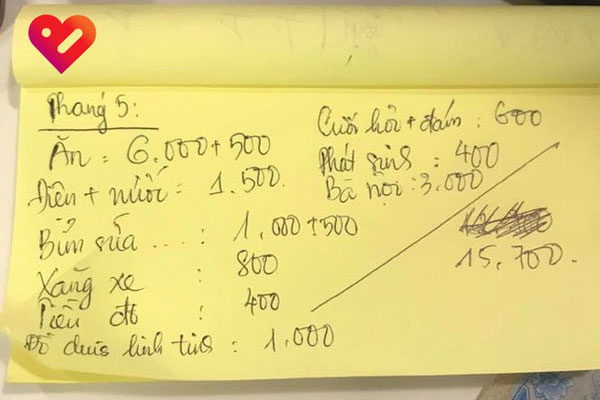 Tháng 5:
Ăn = 6.000 + 500
Điện + nước = 1.500.
Bỉm sữa ....: 1.000 + 500
Xăng xe : 800
Tiền đò : 400
Đồ dùng linh tinh : 1.000
Cưới hỏi + đám : 600
Phát sinh : 400
Bà nội : 3.000
15.700.